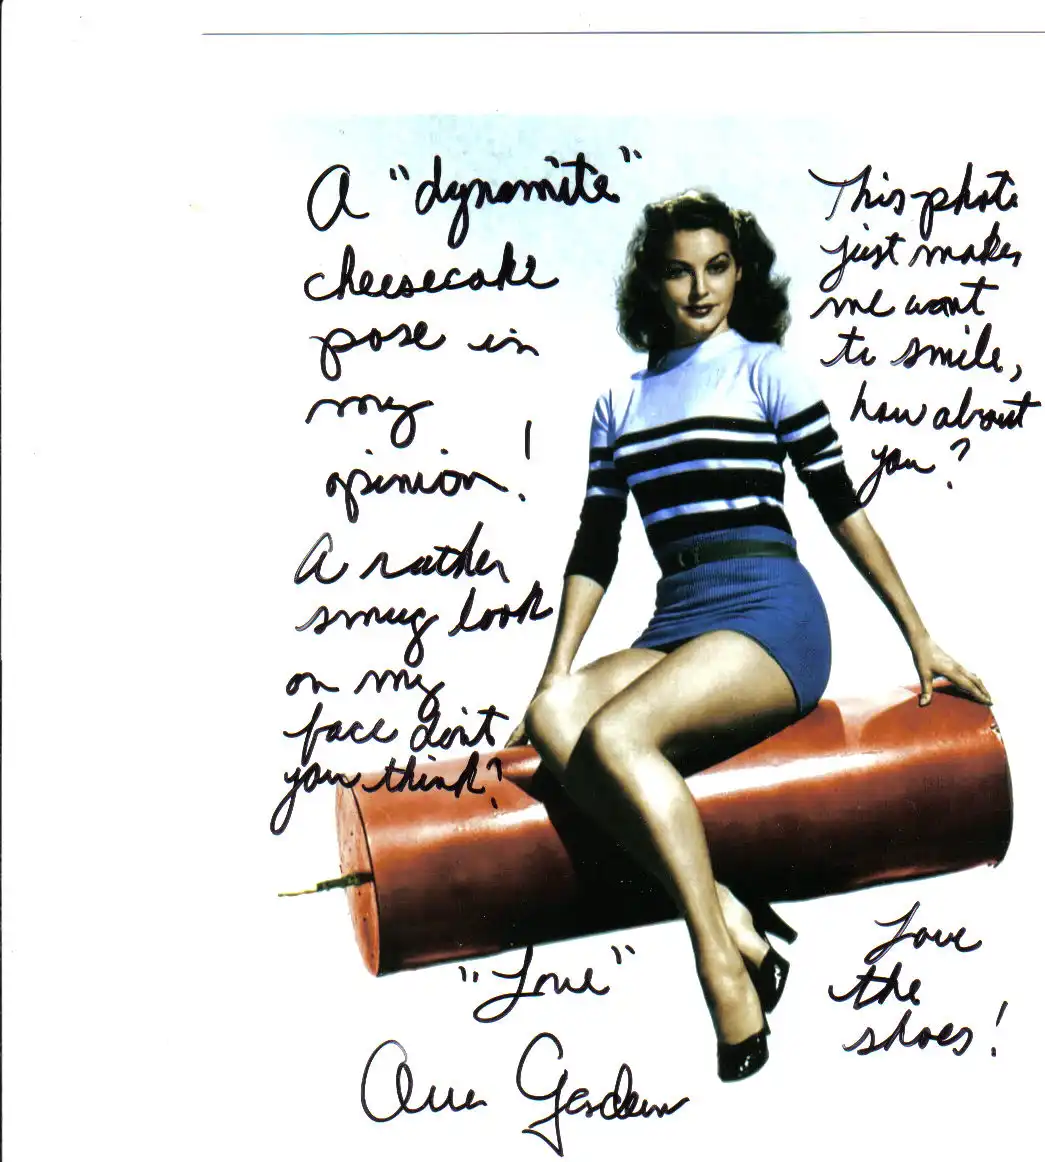 A "dynamite"
cheesecake
pose in
my
opinion!
A rather
smug look
on my
face don't
you think?
This photo
just makes
me want
to smile,
how about
you?
Love
the
shoes!
"Love"
Ava Gardner